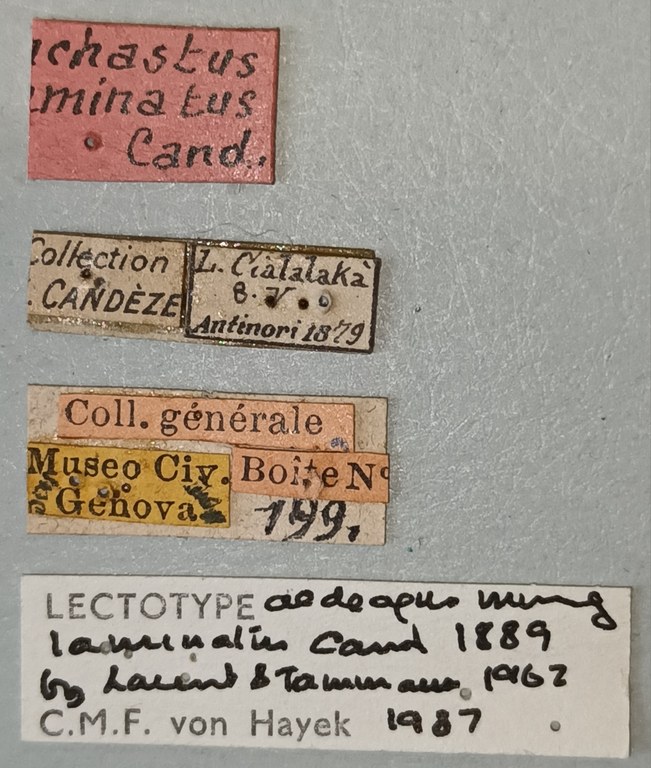 chastus
minatus
Cand.
Collection
. CANDÈZE
L. Cialalakà
8. V.
Antinori 1879
Coll. générale
Museo Civ.
Genova
Boîte Nº
199.
LECTOTYPE aedeagus
laminatus Cand 1889
by Laurent & 1967
C.M.F. von Hayek 1987